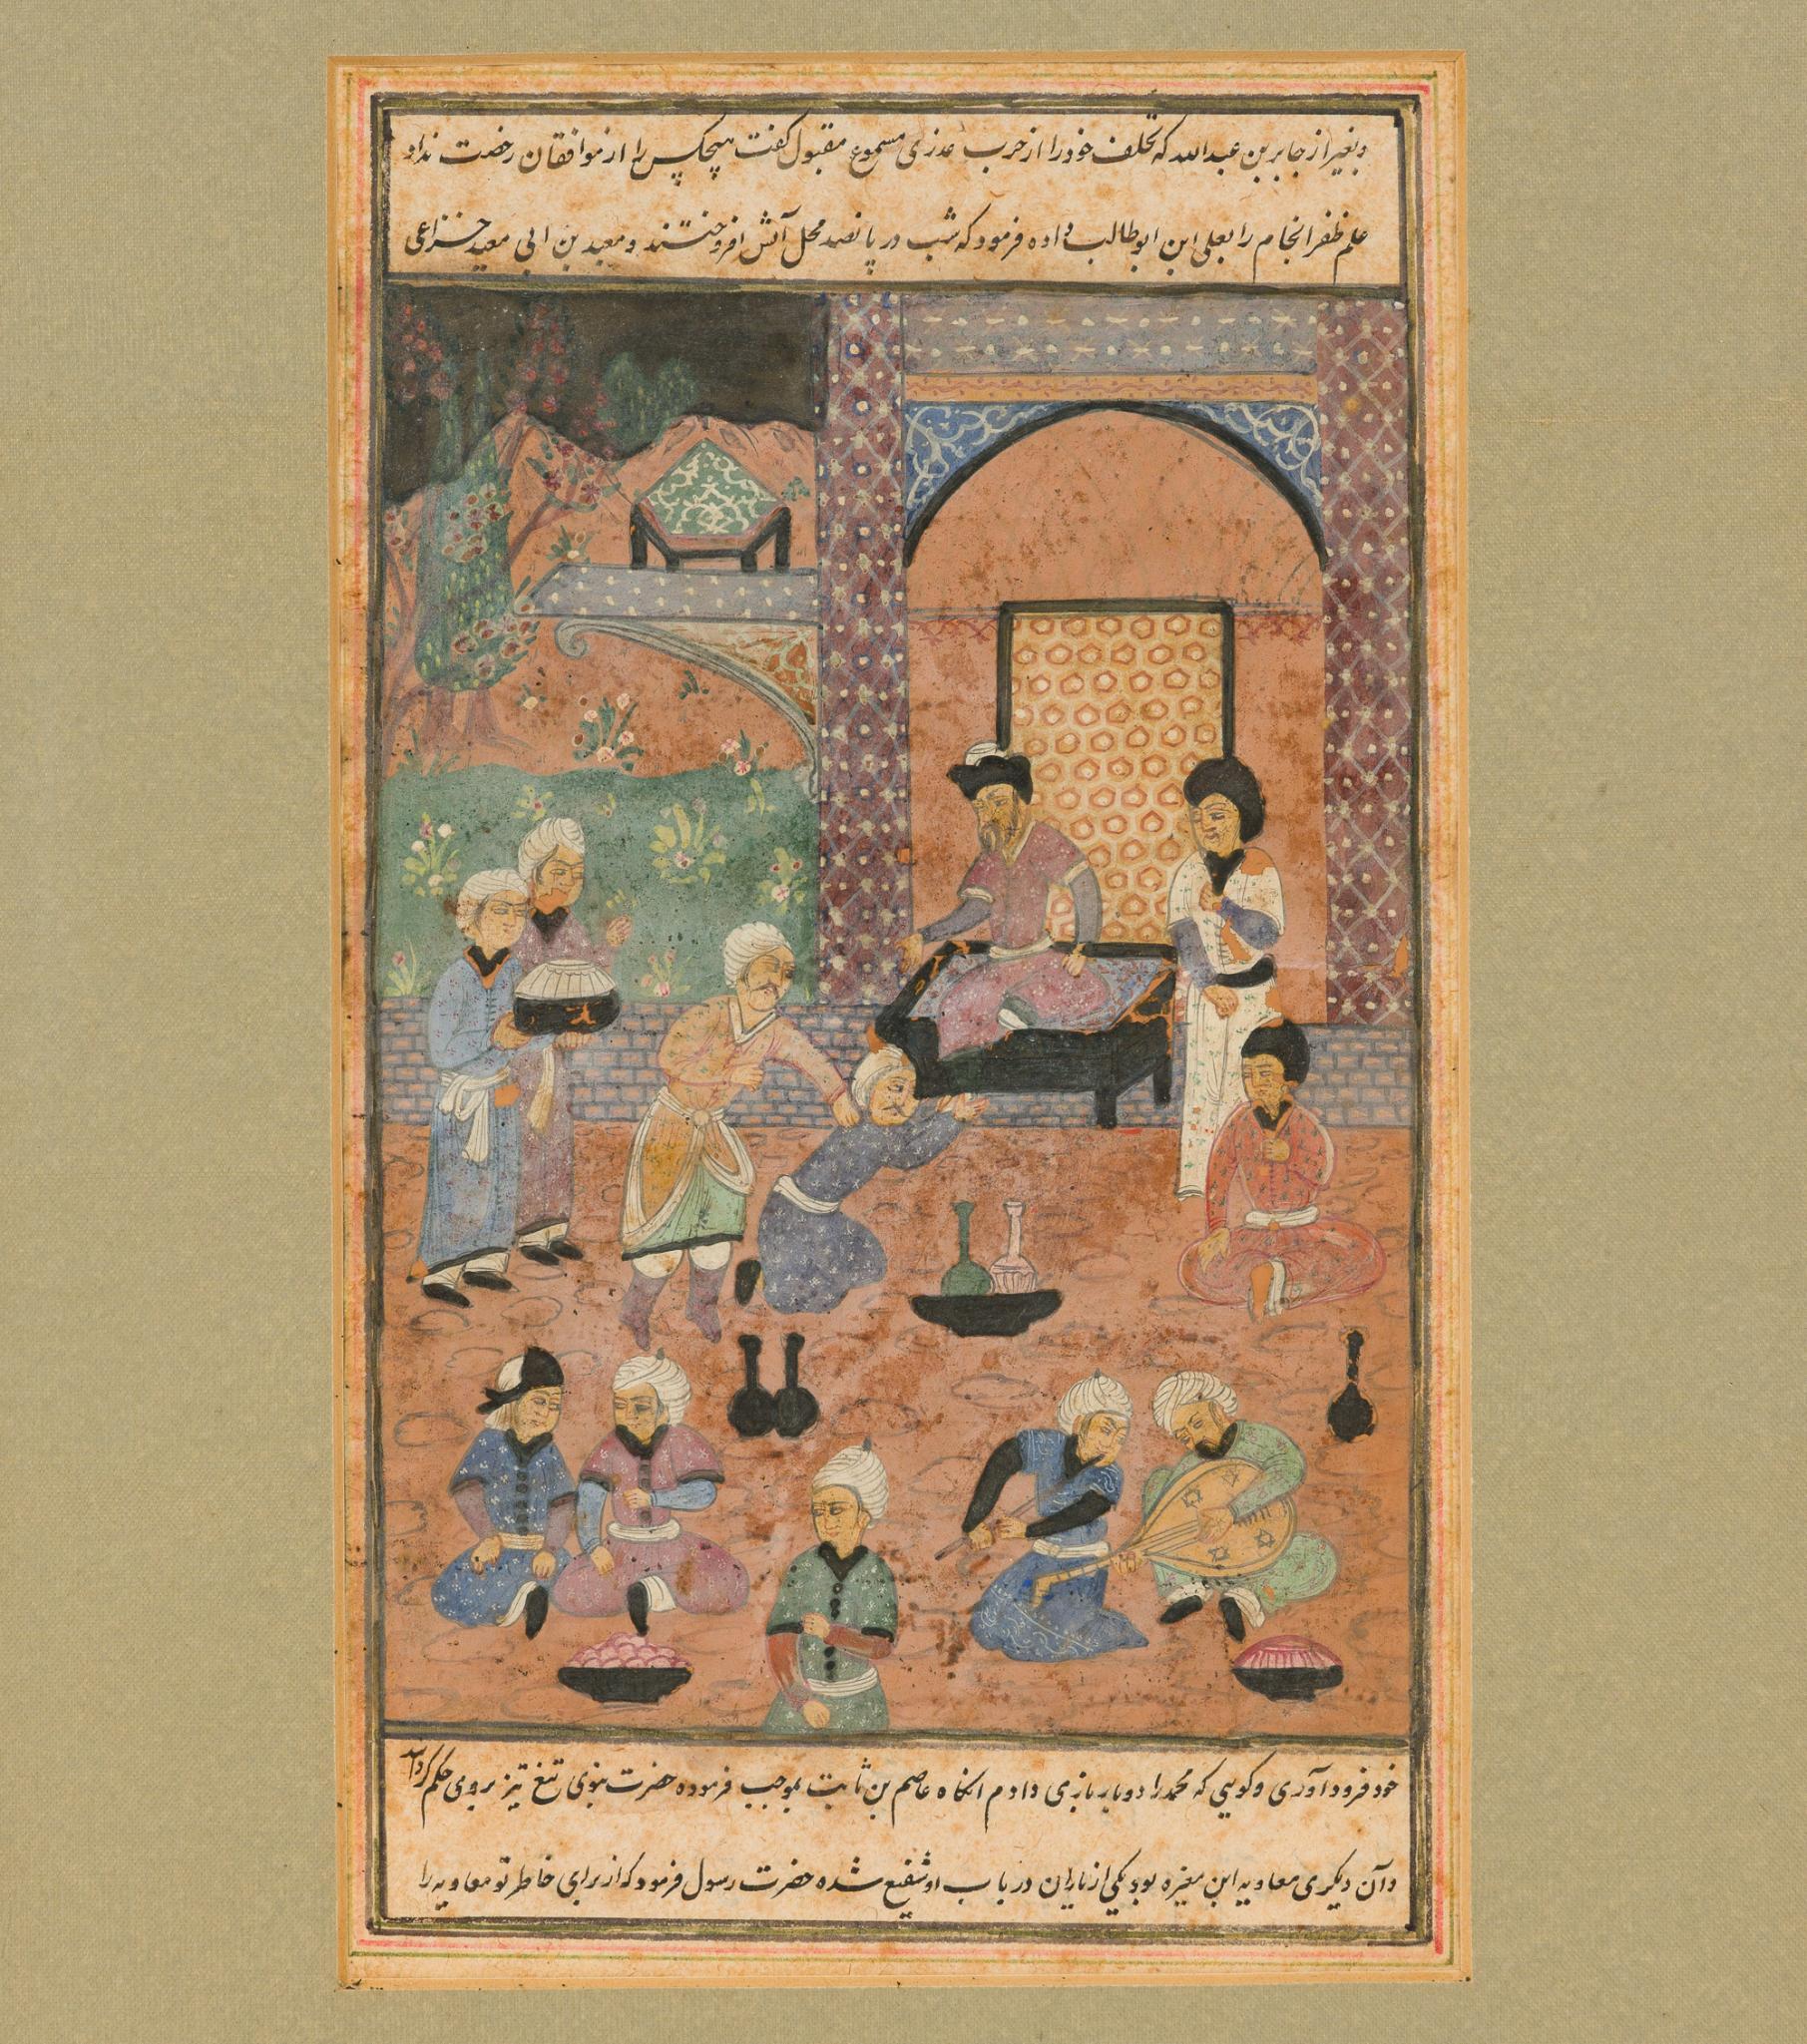 و بغیر از جابر بن عبدالله که تخلف خود را از حرب عذری مسموع مقبول گفت هیچکس را از موافقان رخصت نداد
علم ظفر انجام را بعلی ابن ابوطالب داده فرمود که شب در پانصد محل آتش افروختند و معبد بن ابی معبد خزاعی
خود فرود آوری و کویی که محمد را دوبار بازی دادم انکاه عاصم بن ثابت بموجب فرموده حضرت نبوی تیغ تیز بروی حکم کرد
و آن دیکری معاویه ابن مغیره بود یکی از یاران در باب او شفیع شده حضرت رسول فرمود که از برای خاطر تو معاویه را